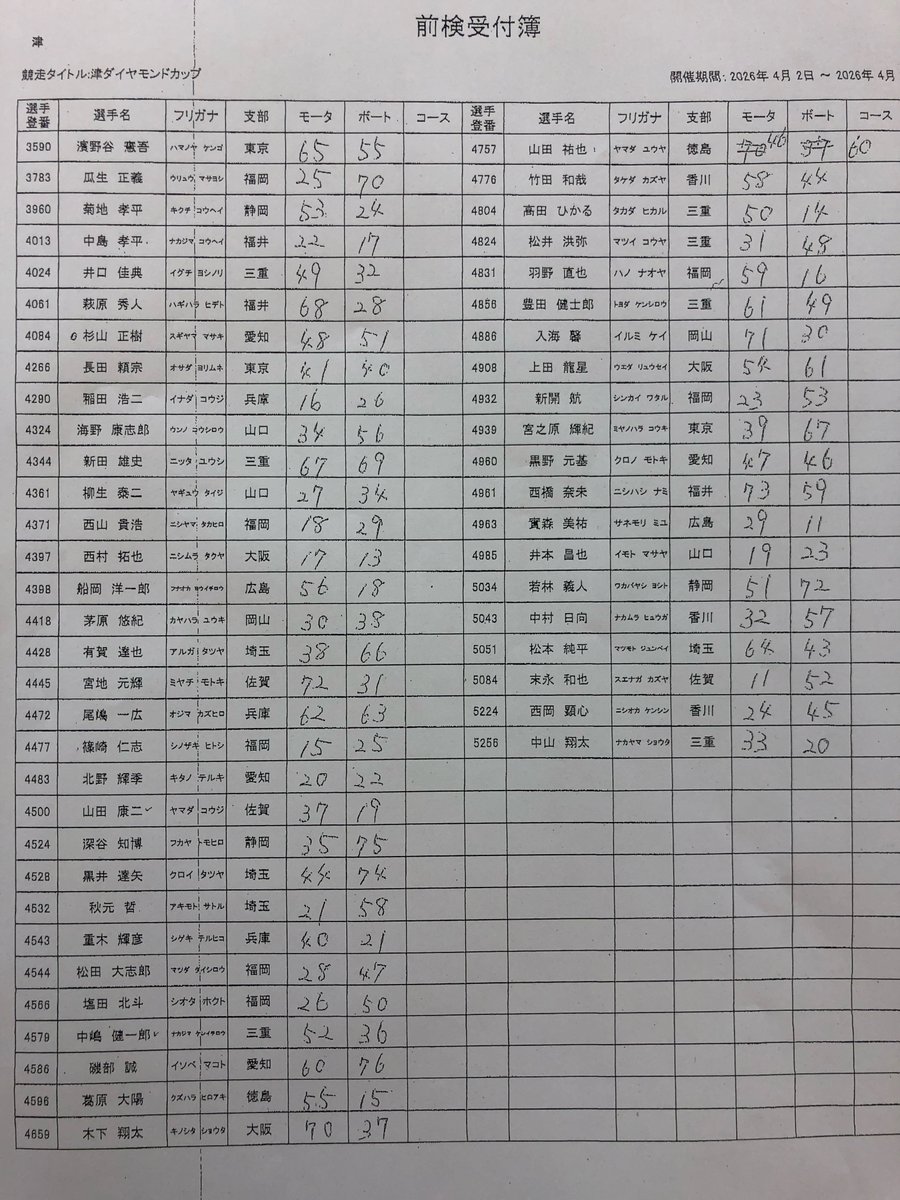 前検受付簿
津
競走タイトル:津ダイヤモンドカップ 開催期間: 2026年 4月 2日 ～ 2026年 4月
選手登番 選手名 フリガナ 支部 モータ ボート コース 選手登番 選手名 フリガナ 支部 モータ ボート コース
3590 濱野谷 憲吾 ハマノヤ ケンゴ 東京 65 55 4757 山田 祐也 ヤマダ ユウヤ 徳島 46 60
3783 瓜生 正義 ウリュウ マサヨシ 福岡 25 70 4776 竹田 和哉 タケダ カズヤ 香川 58 44
3960 菊地 孝平 キクチ コウヘイ 静岡 53 24 4804 高田 ひかる タカダ ヒカル 三重 50 14
4013 中島 孝平 ナカジマ コウヘイ 福井 22 17 4824 松井 洪弥 マツイ コウヤ 三重 31 48
4024 井口 佳典 イグチ ヨシノリ 三重 49 32 4831 羽野 直也 ハノ ナオヤ 福岡 59 16
4061 萩原 秀人 ハギハラ ヒデト 福井 68 28 4856 豊田 健士郎 トヨダ ケンシロウ 三重 61 49
4084 杉山 正樹 スギヤマ マサキ 愛知 48 51 4886 入海 馨 イルミ ケイ 岡山 71 30
4266 長田 頼宗 オサダ ヨリムネ 東京 41 40 4908 上田 龍星 ウエダ リュウセイ 大阪 54 61
4290 稲田 浩二 イナダ コウジ 兵庫 16 26 4932 新開 航 シンカイ ワタル 福岡 23 53
4324 海野 康志郎 ウンノ コウシロウ 山口 34 56 4939 宮之原 輝紀 ミヤノハラ コウキ 東京 39 67
4344 新田 雄史 ニッタ ユウシ 三重 67 69 4960 黒野 元基 クロノ モトキ 愛知 47 46
4361 柳生 泰二 ヤギュウ タイジ 山口 27 34 4961 西橋 奈未 ニシハシ ナミ 福井 73 59
4371 西山 貴浩 ニシヤマ タカヒロ 福岡 18 29 4963 實森 美祐 サネモリ ミユ 広島 29 11
4397 西村 拓也 ニシムラ タクヤ 大阪 17 13 4985 井本 昌也 イモト マサヤ 山口 19 23
4398 船岡 洋一郎 フナオカ ヨウイチロウ 広島 56 18 5034 若林 義人 ワカバヤシ ヨシト 静岡 51 72
4418 茅原 悠紀 カヤハラ ユウキ 岡山 30 38 5043 中村 日向 ナカムラ ヒュウガ 香川 32 57
4428 有賀 達也 アルガ タツヤ 埼玉 38 66 5051 松本 純平 マツモト ジュンペイ 埼玉 64 43
4445 宮地 元輝 ミヤチ モトキ 佐賀 72 31 5084 末永 和也 スエナガ カズヤ 佐賀 11 52
4472 尾嶋 一広 オジマ カズヒロ 兵庫 62 63 5224 西岡 顕心 ニシオカ ケンシン 香川 24 45
4477 篠崎 仁志 シノザキ ヒトシ 福岡 15 25 5256 中山 翔太 ナカヤマ ショウタ 三重 33 20
4483 北野 輝季 キタノ テルキ 愛知 20 22
4500 山田 康二 ヤマダ コウジ 佐賀 37 19
4524 深谷 知博 フカヤ トモヒロ 静岡 35 75
4528 黒井 達矢 クロイ タツヤ 埼玉 44 74
4532 秋元 哲 アキモト サトル 埼玉 21 58
4543 重木 輝彦 シゲキ テルヒコ 兵庫 40 21
4544 松田 大志郎 マツダ ダイシロウ 福岡 28 47
4566 塩田 北斗 シオタ ホクト 福岡 26 50
4579 中嶋 健一郎 ナカジマ ケンイチロウ 三重 52 36
4586 磯部 誠 イソベ マコト 愛知 60 76
4596 葛原 大陽 クズハラ ヒロアキ 徳島 55 15
4659 木下 翔太 キノシタ ショウタ 大阪 70 37